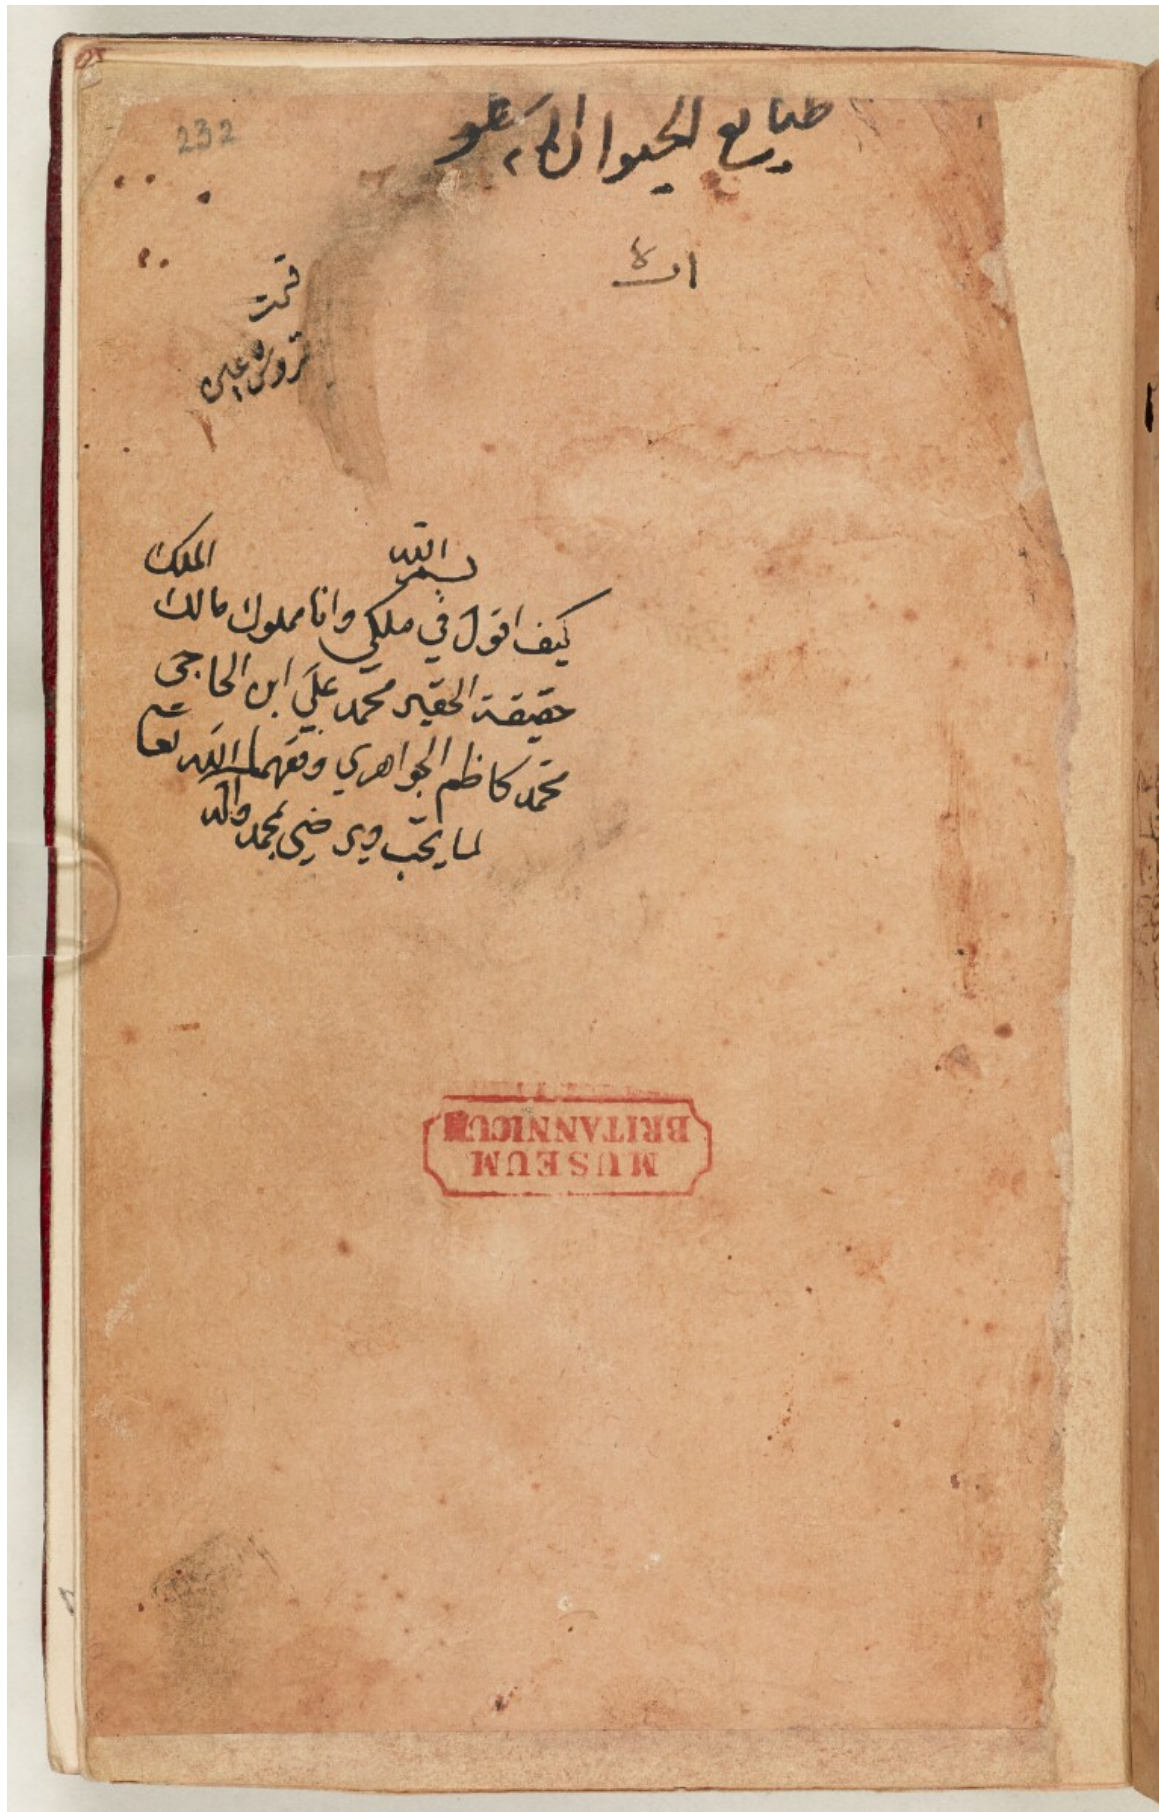 232
طبايع الحيوان لارسطو
قمت
قروش
بسم الله
الملك
كيف اقول في ملكي وانا مملوك مالك
حقيقة الحقير محمد علي ابن الحاجي
محمد كاظم الجواهري وفقهما الله تعا
لما يحب ويرضى بمحمد واله
MUSEUM
BRITANNICUM